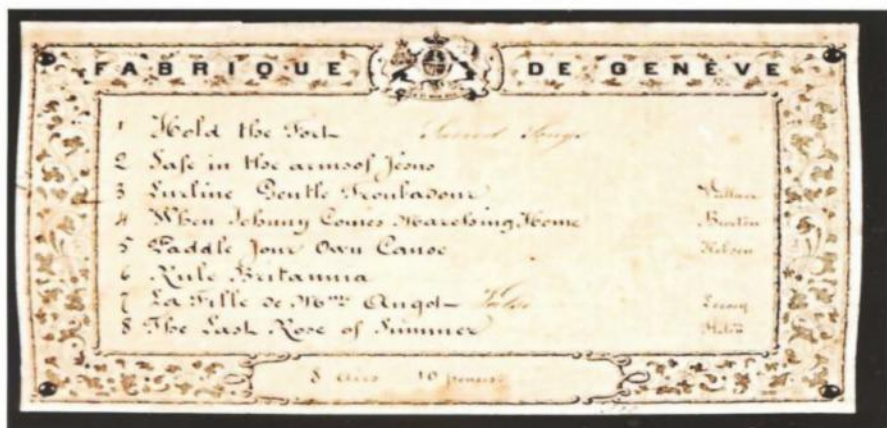 FABRIQUE DE GENÈVE
1 Hold the Fort Sacred Songs
2 Safe in the arms of Jesus
3 Lurline Gentle Troubadour Wallace
4 When Johnny Comes Marching Home
5 Paddle Your Own Canoe
6 Rule Britannia
7 La Fille de Mme Angot Lecocq
8 The Last Rose of Summer
8 Airs 10 pouces